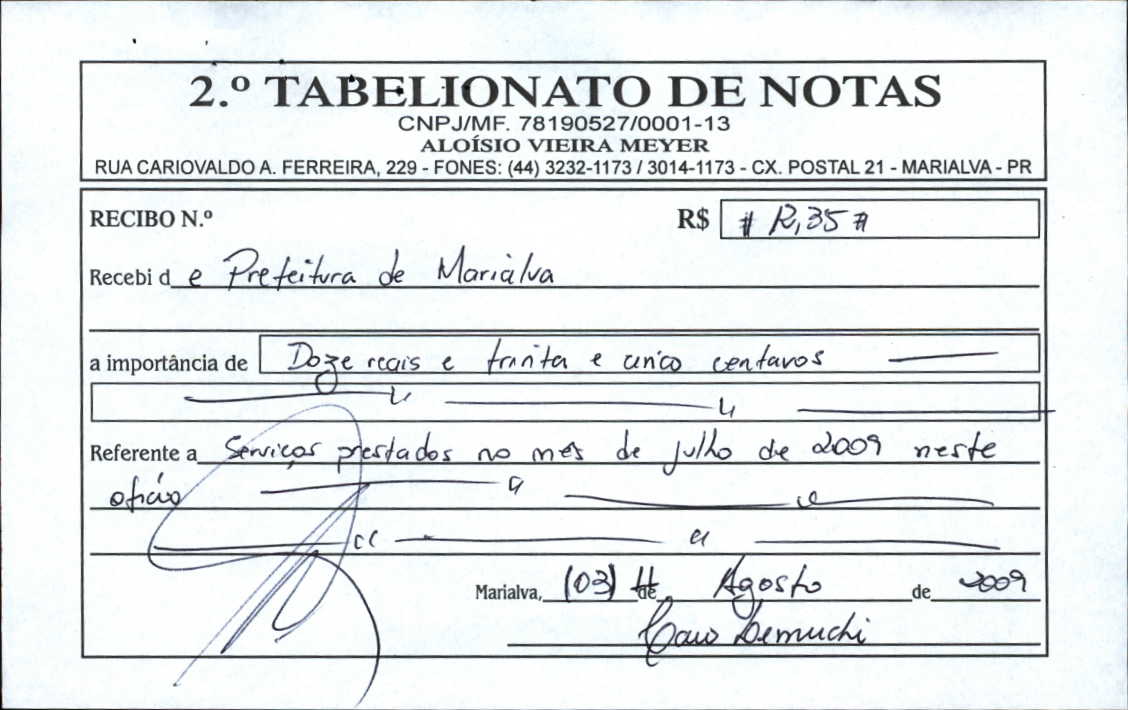 2.º TABELIONATO DE NOTAS
CNPJ/MF. 78190527/0001-13
ALOÍSIO VIEIRA MEYER
RUA CARIOVALDO A. FERREIRA, 229 - FONES: (44) 3232-1173 / 3014-1173 - CX. POSTAL 21 - MARIALVA - PR
RECIBO N.º R$ # 12,35 #
Recebi d e Prefeitura de Marialva
a importância de Doze reais e trinta e cinco centavos
Referente a Serviços prestados no mês de julho de 2009 neste
ofício
Marialva, (03) de Agosto de 2009